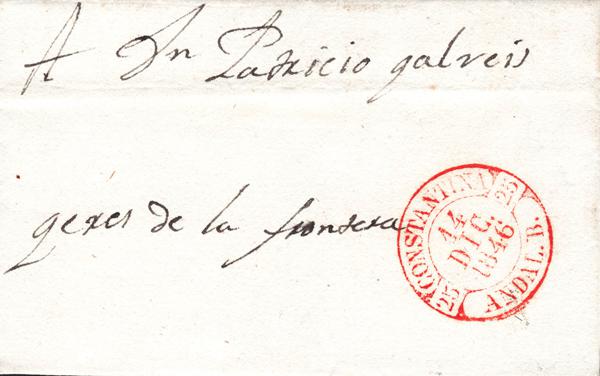 A Dn Patricio galveis
gexes de la frontera
CONSTANTINA 25
14
DIC.
1846.
25 ANDAL. B.